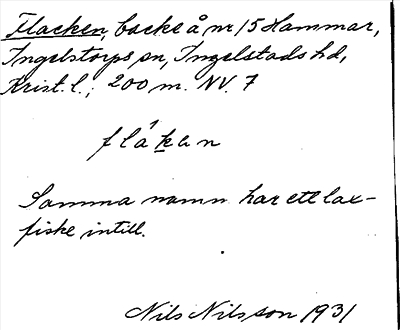 Flacken, backe å nr 15 Hammar,
Ingelstorps sn, Ingelstads hd,
Krist. l.; 200 m. NV. 7
flákan
Samma namn har ett lax-
fiske intill.
Nils Nilsson 1931